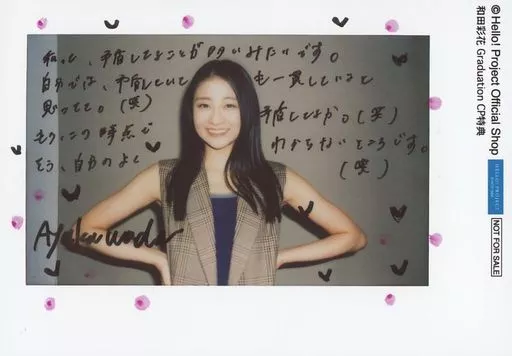 私って、矛盾してることが多いみたいです。
自分では、矛盾していても一貫していると
思ってて。(笑)
矛盾してるか。(笑)
もうこの時点で
わからないところです。
そう、自分のよく
(笑)
Ayaka wada
© Hello! Project Official Shop
和田彩花 Graduation CP特典
HELLO! PROJECT
NOT FOR SALE